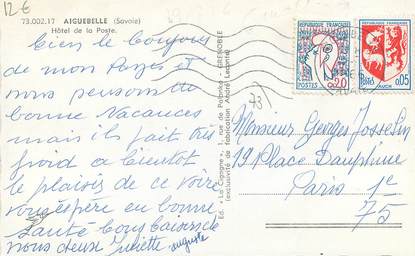 12 €
73.002.17 AIGUEBELLE (Savoie)
Hôtel de la Poste.
bien le bonjour
de mon Pays et
nous pensons de
bonne Vacances
mais il fait très
froid a bientot
le plaisir de ce voire
vous espère en bonne
Santé bons baisers de
nous deux Juliette auguste
Ed. "La Cigogne", 1, rue de Palanka - GRENOBLE
(exclusivité de fabrication André Leconte)
731
REPUBLIQUE FRANÇAISE
POSTES 0,20
REPUBLIQUE FRANÇAISE
AUCH 0,05
Monsieur Georges Josselin
19 Place Dauphine
Paris 1e
75